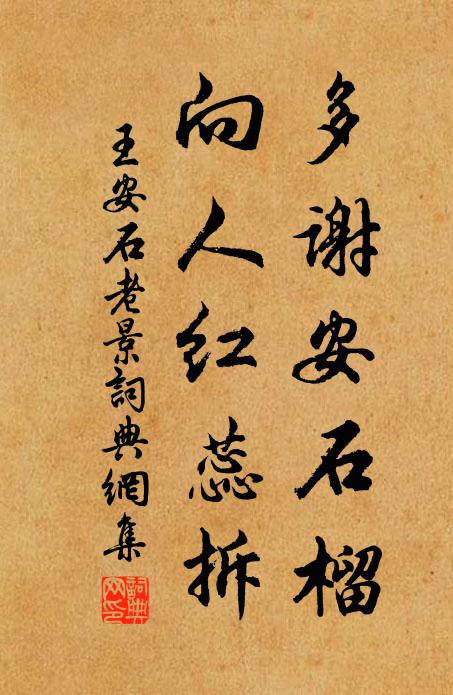 多謝安石榴
向人紅蕊拆
王安石老景詞典網集
詞典網印